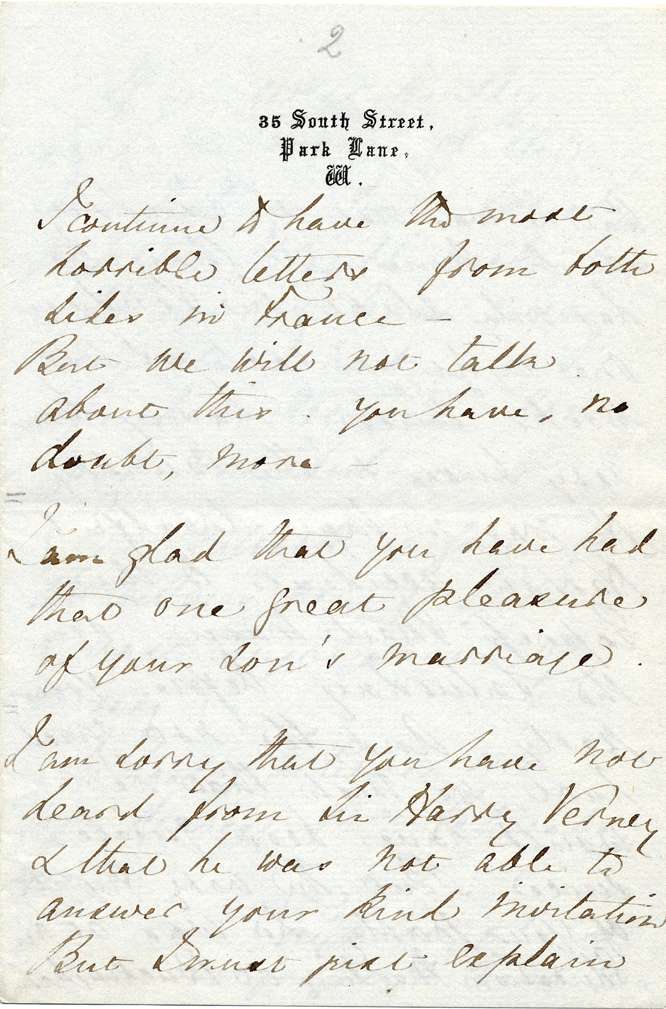 2
35 South Street,
Park Lane,
W.
I continue to have the most
horrible letters from both
sides in France –
But we will not talk
about this. you have, no
doubt, more –
I am glad that you have had
that one great pleasure
of your son's marriage.
I am sorry that you have not
heard from Sir Harry Verney
& that he was not able to
answer your kind invitation
But I must just explain